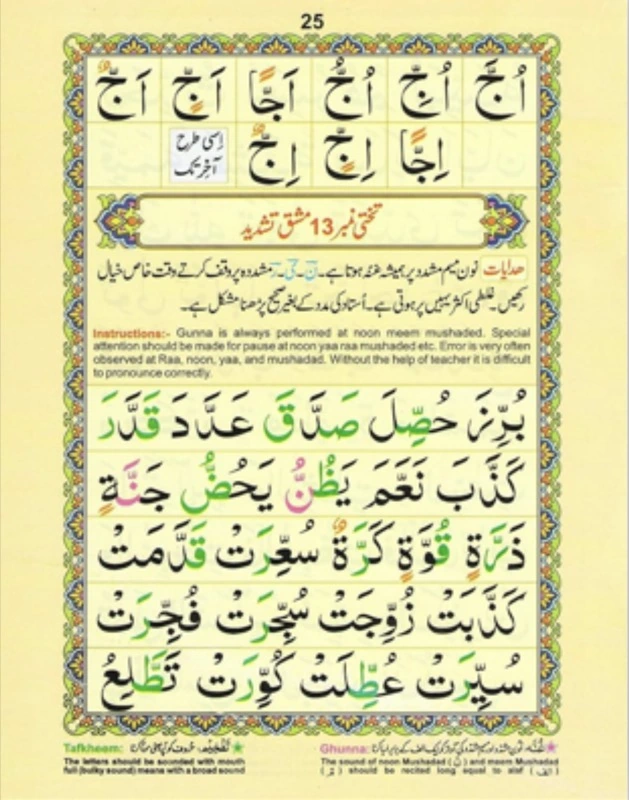 25
اُجَّ اُجِّ اُجُّ اَجًّا اَجٍّ اَجٌّ
اِجًّا اِجٍّ اِجٌّ اِسی طرح آخر تک
تختی نمبر 13 مشق تشدید
ھدایات نون میم مشدد پر ہمیشہ غنہ ہوتا ہے۔ نّ۔ یّ۔ رّ مشددہ پر وقف کرتے وقت خاص خیال
رکھیں۔ غلطی اکثر یہیں پر ہوتی ہے۔ اُستاد کی مدد کے بغیر صحیح پڑھنا مشکل ہے۔
Instructions:- Gunna is always performed at noon meem mushaded. Special
attention should be made for pause at noon yaa raa mushaded etc. Error is very often
observed at Raa, noon, yaa, and mushadad. Without the help of teacher it is difficult
to pronounce correctly.
بُرِّزَ حُصِّلَ صَدَّقَ عَدَّدَ قَدَّرَ
كَذَّبَ نَعَّمَ يَظُنُّ يَحُضُّ جَنَّةٍ
ذَرَّةٍ قُوَّةٍ كَرَّةٌ سُعِّرَتْ قَدَّمَتْ
كَذَّبَتْ زُوِّجَتْ سُجِّرَتْ فُجِّرَتْ
سُيِّرَتْ عُطِّلَتْ كُوِّرَتْ تَطَّلِعُ
Ghunna:
The sound of noon Mushadad (نّ) and meem Mushadad
(مّ) should be recited long equal to alaf (الف)
Tafkheem:
The letters should be sounded with mouth
full (bulky sound) means with a broad sound